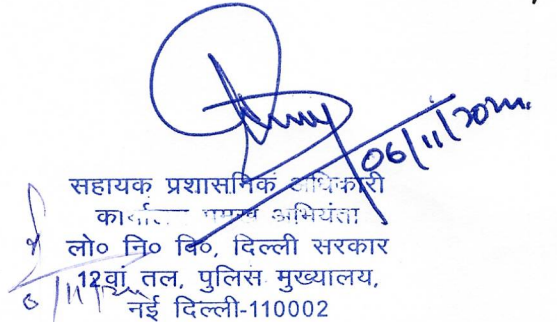 06/11/20
सहायक प्रशासनिक अधिकारी
कार्यालय प्रमुख अभियंता
लो० नि० वि०, दिल्ली सरकार
12वां तल, पुलिस मुख्यालय,
नई दिल्ली-110002